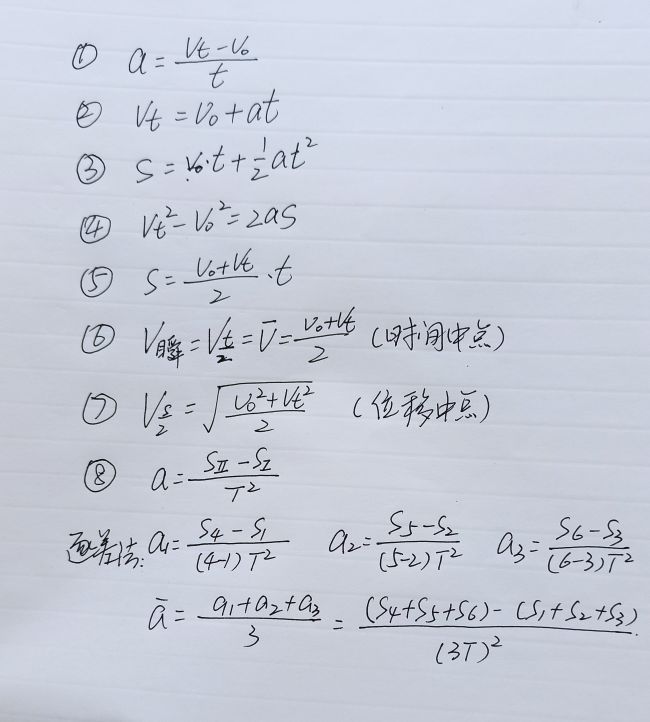 ① a = (Vt - V₀)/t
② Vt = V₀ + at
③ S = V₀·t + 1/2 at²
④ Vt² - V₀² = 2aS
⑤ S = (V₀ + Vt)/2 · t
⑥ V瞬 = V_(t/2) = V̄ = (V₀ + Vt)/2 (时间中点)
⑦ V_(s/2) = √((V₀² + Vt²)/2) (位移中点)
⑧ a = (S_Ⅱ - S_Ⅰ)/T²
逐差法: a₁ = (S₄ - S₁)/((4-1)T²) a₂ = (S₅ - S₂)/((5-2)T²) a₃ = (S₆ - S₃)/((6-3)T²)
ā = (a₁ + a₂ + a₃)/3 = ((S₄ + S₅ + S₆) - (S₁ + S₂ + S₃))/(3T)²